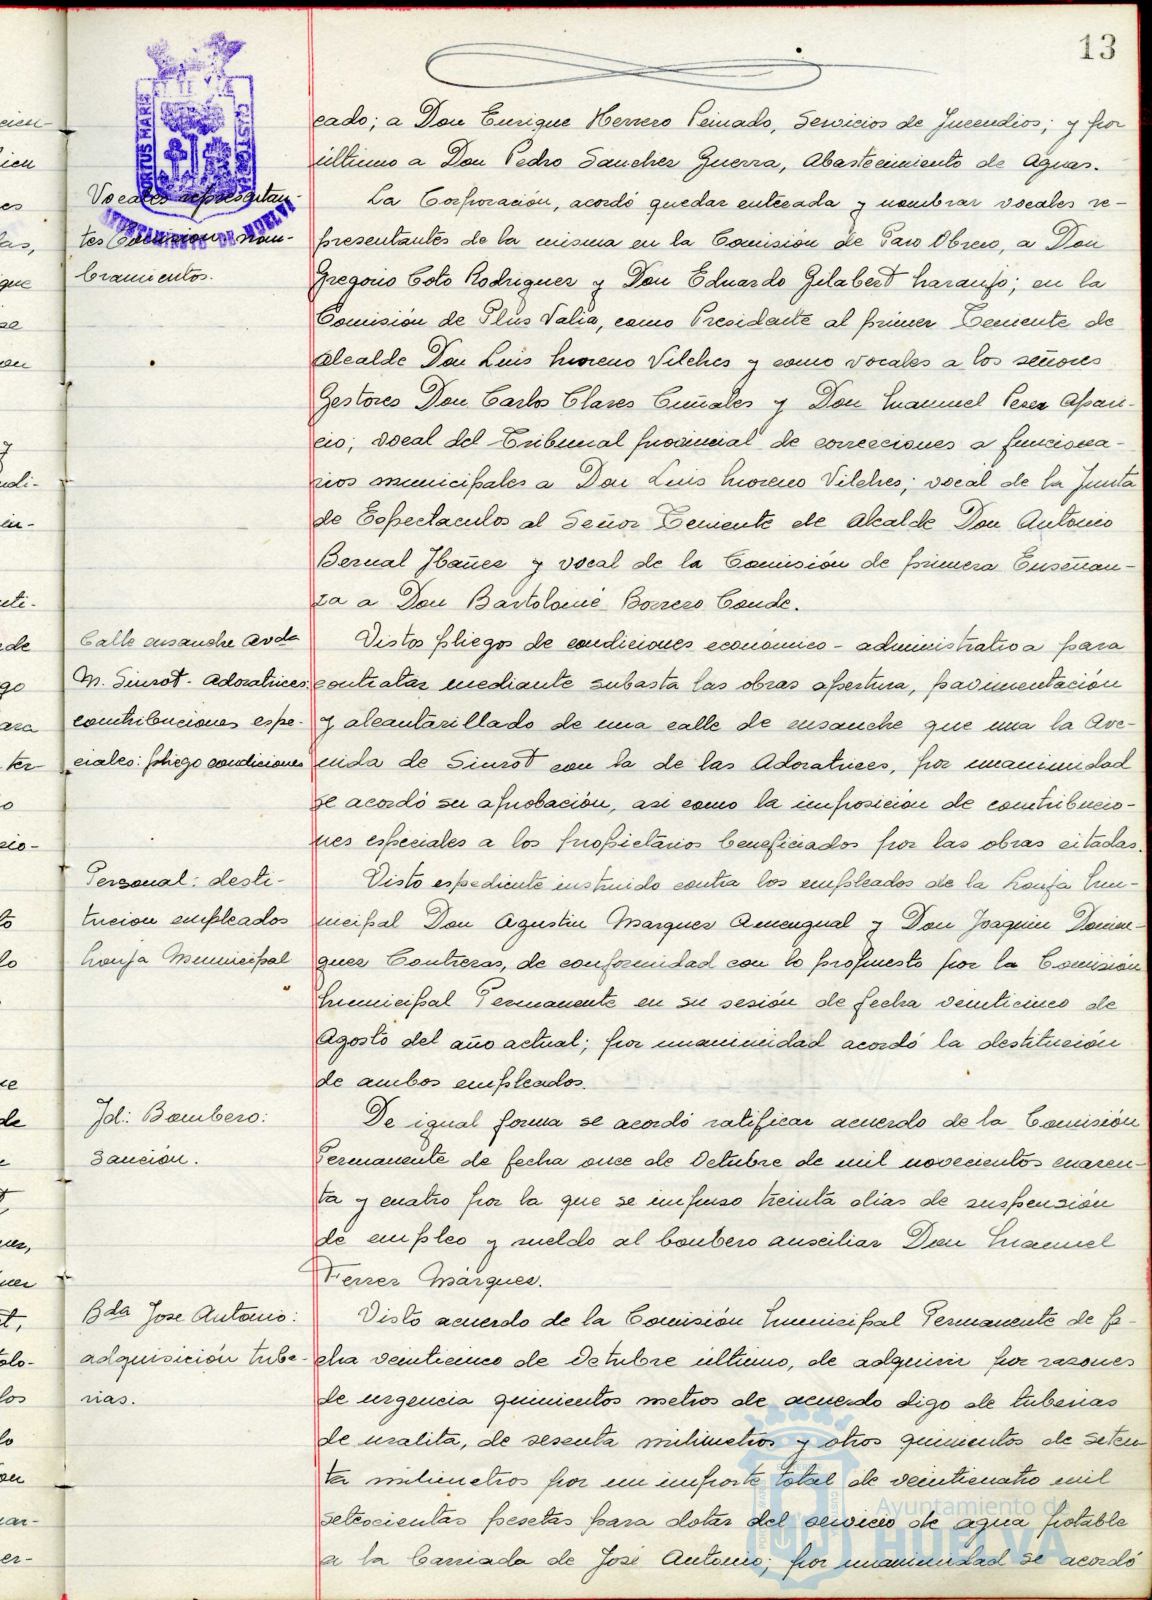 13
cado; a Don Enrique Herrero Peinado, Servicios de Jncendios; y por
último a Don Pedro Sanchez Guerra, Abastecimiento de Aguas.
Vocales represéntan-
tes Comision, nom-
bramientos.
La Corporación, acordó quedar enterada y nombrar vocales re-
presentantes de la misma en la Comisión de Paro Obrero, a Don
Gregorio Coto Rodriguez y Don Eduardo Gilabert Naranjo; en la
Comisión de Plus Valia, como Presidente al primer Teniente de
Alcalde Don Luis Moreno Vilches y como vocales a los señores
Gestores Don Carlos Clares Cuñales y Don Manuel Perez Apari-
cio; vocal del Tribunal provincial de correcciones a funciona-
rios municipales a Don Luis Moreno Vilches; vocal de la Junta
de Espectaculos al Señor Teniente de Alcalde Don Antonio
Bernal Jbañez y vocal de la Comisión de primera Enseñan-
za a Don Bartolomé Borrero Conde.
Calle ensanche Avda
M. Siurot - Adoratrices:
contribuciones espe-
ciales: pliego condiciones
Vistos pliegos de condiciones económico - administrativa para
contratar mediante subasta las obras apertura, pavimentación
y alcantarillado de una calle de ensanche que una la Ave-
nida de Siurot con la de las Adoratrices, por unanimidad
se acordó su aprobación, asi como la imposición de contribucio-
nes especiales a los propietarios beneficiados por las obras citadas.
Personal: desti-
tucion empleados
Lonja Municipal
Visto espediente instruido contra los empleados de la Lonja Mu-
nicipal Don Agustin Marquez Amengual y Don Joaquin Domin-
guez Contreras, de conformidad con lo propuesto por la Comisión
Municipal Permanente en su sesión de fecha veinticinco de
Agosto del año actual; por unanimidad acordó la destitución
de ambos empleados.
Jd: Bombero:
Sanción.
De igual forma se acordó ratificar acuerdo de la Comisión
Permanente de fecha once de Octubre de mil novecientos cuaren-
ta y cuatro por la que se impuso treinta dias de suspensión
de empleo y sueldo al bombero auxiliar Don Manuel
Ferrer Márquez.
Bda Jose Antonio:
adquisición tube-
rias.
Visto acuerdo de la Comisión Municipal Permanente de fe-
cha veinticinco de Octubre último, de adquirir por razones
de urgencia quinientos metros de acuerdo digo de tuberias
de uralita, de sesenta milimetros y otros quinientos de seten-
ta milimetros por un importe total de veinticuatro mil
setecientas pesetas para dotar del servicio de agua potable
a la Barriada de José Antonio; por unanimidad se acordó
PORTUS MARIS
ET TERRAE CUSTODIA
AYUNTAMIENTO DE HUELVA
Ayuntamiento de
HUELVA